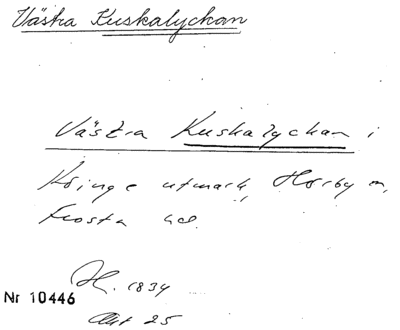 Västra Kuskalychan
Västra Kuskalychan i
utmark, Hörby
Frosta hd.
H. 1834
Nr 10446
Akt 25